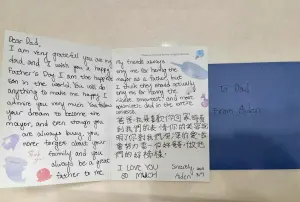 Dear Dad,
I am very grateful you are my
dad, and I wish you a happy
Father's Day. I am the happiest
son in the world. You will do
anything to make me happy. I
admire you very much. You follow
your dream to become the
mayor, and even though you
are always busy, you
never forget about your
family and you
always be a great
father to me.
My friends always
envy me for having the
mayor as a father, but
I think they should actually
envy me for having the
kindest, smartest, and most
optimistic dad in the entire
world.
爸爸,我最喜歡你回家時看
到我們的
I LOVE YOU
SO MUCH!
Sincerely,
Aiden
To Dad
From Aiden